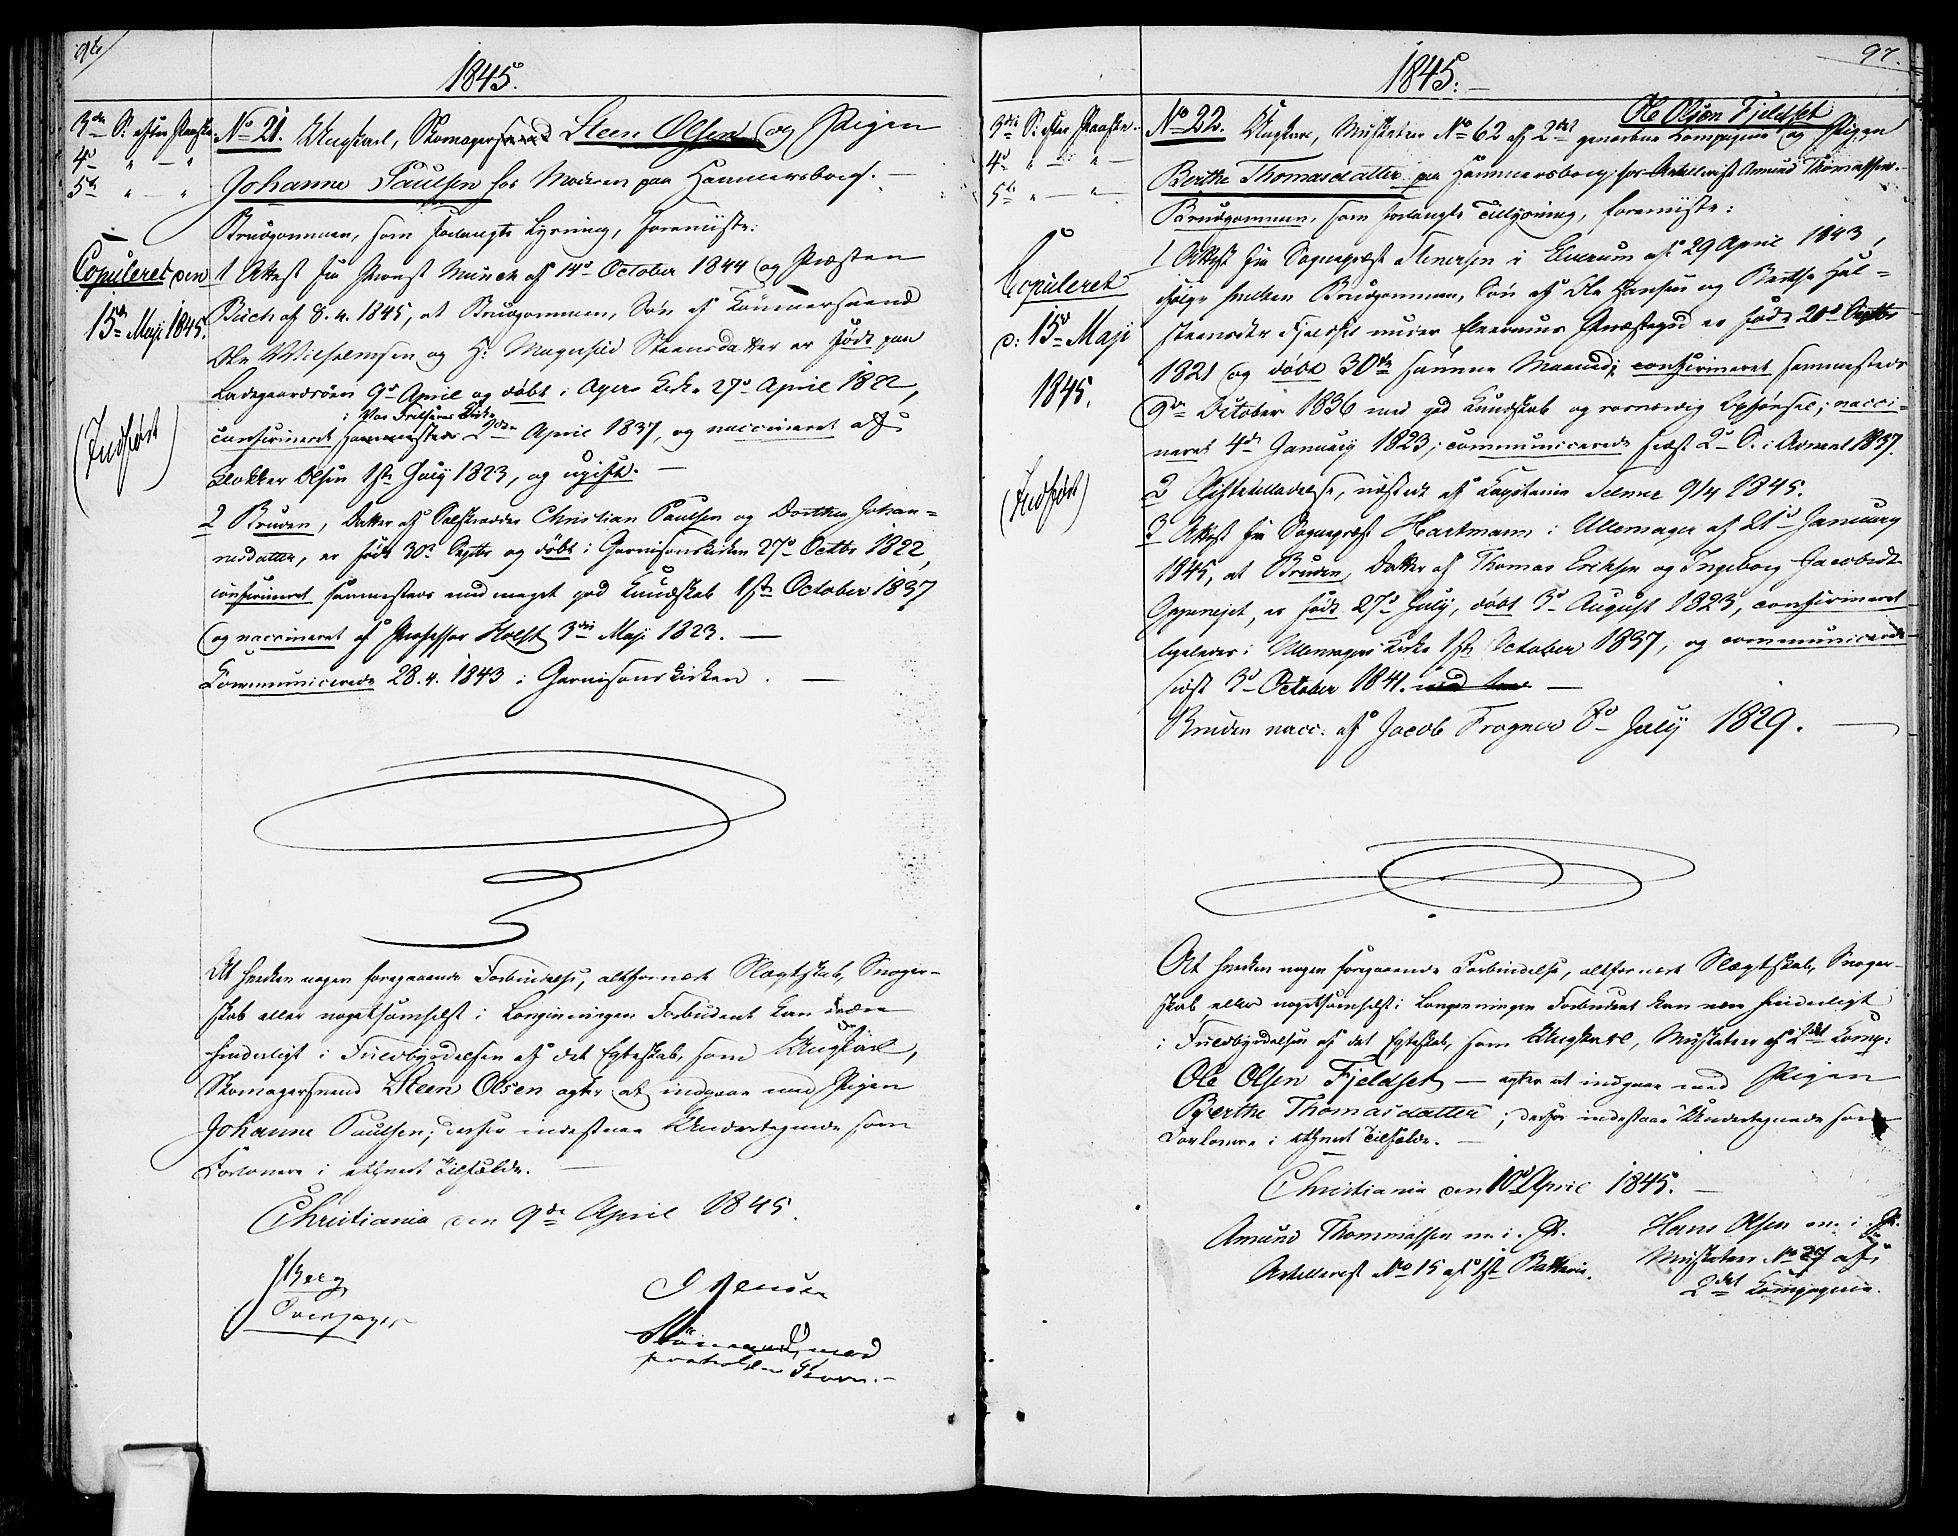 96
1845.
3de S. efter Paaske.
4de " — "
5te " — "
Copuleret den
15de Maji 1845.
(Indført)
No 21. Ungkarl, Skomagersvend Steen Olsen og Pigen
Johanne Paulsen hos Moderen paa Hammersborg. —
Brudgommen, som forlangte Lysning, foreviste:
1 Attest fra Provst Münch af 14de October 1844 og Præsten
Buch af 8.4.1845, at Brudgommen, Søn af Tømmersvend
Ole Wilhelmsen og H: Steensdatter er født paa
Ladegaardsøen 9de April og døbt i Agers Kirke 27de April 1822,
i Vor Frelsers Kirke
confirmeret sammesteds 2den April 1837, og vaccineret af
Klokker Olsen 1ste July 1823, og ugift. —
2 Bruden, Datter af Christian Paulsen og Dorthea Johan-
nesdatter, er født 30te Septbr og døbt i Garnisonskirken 27de Octbr 1822,
confirmeret sammesteds med meget god Kundskab 1ste October 1837
og vaccineret af Professor Holst 3die Maji 1823. —
Communicerede 28.4.1843 i Garnisonskirken. —
At hverken nogen foregaaende Forbindelse, altfornært Slægtskab, Svoger-
skab eller nogetsomhelst i Lovgivningen Forbudent kan være
hinderligt i Fuldbyrdelsen af det Egteskab, som Ungkarl,
Skomagersvend Steen Olsen agter at indgaae med Pigen
Johanne Paulsen; derfor indestaae Undertegnede som
Forlovere i ethvert Tilfælde. —
Christiania den 9de April 1845.
Berg
Overjæger
J Jensen
med
paaholden Pen. —
97.
1845. —
3die S. efter Paaske. —
4de " — " —
5te " — " —
Copuleret
d: 15de Maji
1845.
(Indført)
Ole Olsen Fjeldset
No 22. Ungkarl, Musketeer No 62 af 2det gevorbne Compagnie og Pigen
Berthe Thomasdatter paa Hammersborg hos Artillerist Amund Thomassen.
Brudgommen, som forlangte Tillysning, foreviste:
1 Attest fra Sognepræst Stenersen i Elverum af 29 April 1843,
ifølge hvilken Brudgommen, Søn af Ole Hansen og Berthe Hal-
steensdtr Fjeldset under Elverums Præstegjeld er født 20de Septbr
1821 og døbt 30te samme Maaned; confirmeret sammesteds
9de October 1836 med god Kundskab og rosværdig Opførsel; vacci-
neret 4de January 1823; communicerede sidst 2den S. i Advent 1837.
2 Giftetilladelse, udstedt af Capitaine Selmer 9/4 1845.
3 Attest fra Sognepræst Hartmann i Ullensager af 21de January
1845, at Bruden, Datter af Thomas Eriksen og Ingeborg Jacobsdtr
er født 27de July, døbt 3de August 1823, confirmeret
ligeledes i Ullensagers Kirke 1ste October 1837, og communicerede
sidst 3de October 1841. —
Bruden vacc. af Jacob Frogner 8de July 1829. —
At hverken nogen foregaaende Forbindelse, altfornært Slægtskab, Svoger-
skab eller nogetsomhelst i Lovgivningen Forbudent kan være hinderligt
i Fuldbyrdelsen af det Egteskab, som Ungkarl, Musketeer af 2det Comp:
Ole Olsen Fjeldset — agter at indgaae med Pigen
Berthe Thomasdatter; derfor indestaae Undertegnede som
Forlovere i ethvert Tilfælde. —
Christiania den 10de April 1845. —
Amund Thommassen m. i. P.
Artillerist No 15 af 1ste Batterie.
Hans Olsen m. i. P.
Musketeer No 27 af
2det Compagnie.